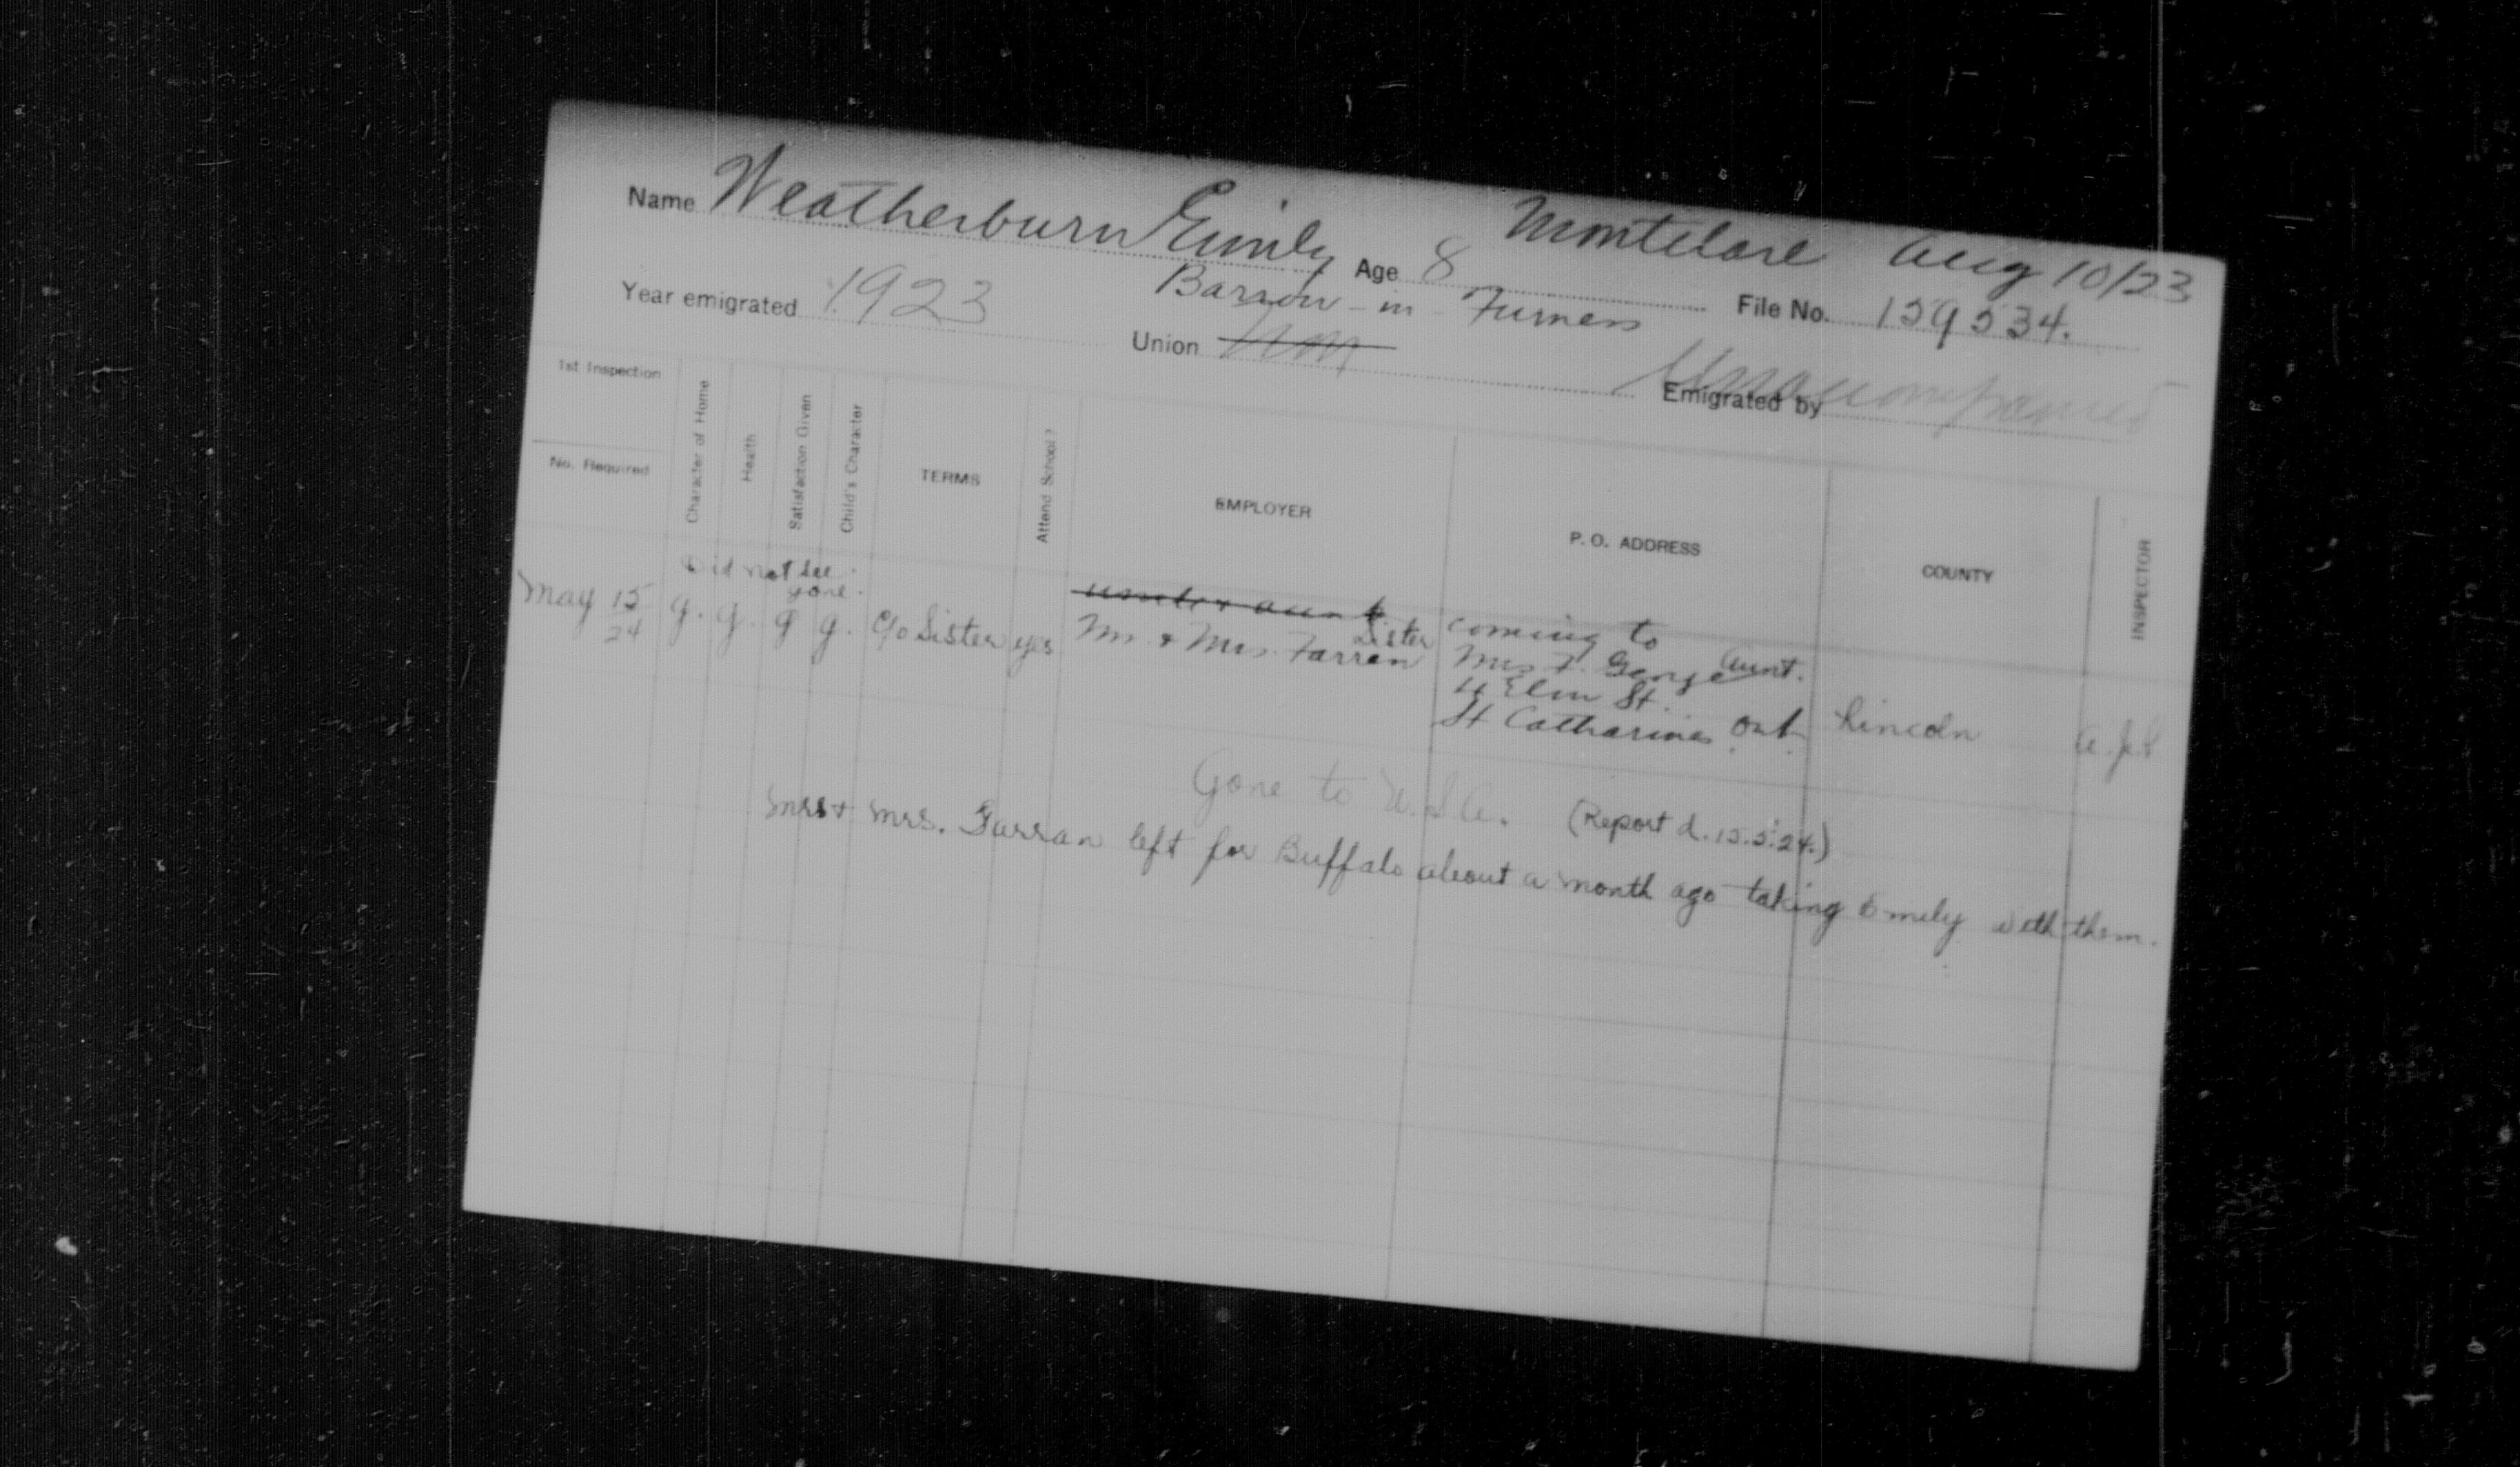 Name Weatherburn Emily Age 8 Montclare Aug 10/23
Year emigrated 1923 Barrow-in-Furness File No. 159534.
Union Emigrated by Unaccompanied
1st Inspection
No. Required
Character of Home
Health
Satisfaction Given
Child's Character
TERMS
Attend School?
EMPLOYER
P. O. ADDRESS
COUNTY
INSPECTOR
Did not see
gone.
May 15 24 g. g. g g. c/o Sister yes
uncle & aunt
Sister
Mr. & Mrs. Farren
coming to
Mrs F. George Aunt.
4 Elm St.
St Catharines Ont. Lincoln
Gone to U.S.A. (Report d. 15.5.24.)
Mrs & Mrs. Farran left for Buffalo about a month ago taking Emily with them.